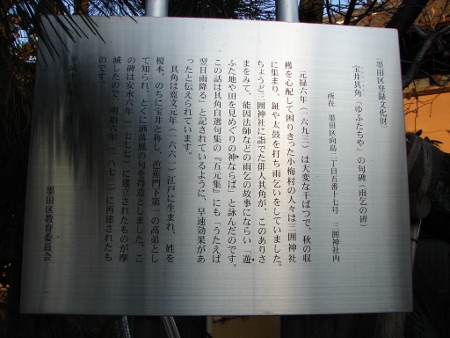 墨田区登録文化財
宝井其角「ゆふだちや」の句碑（雨乞の碑）
所在 墨田区向島二丁目五番十七号 三囲神社内
元禄六年（一六九三）は大変な干ばつで、秋の収
穫を心配して困りきった小梅村の人々は三囲神社
に集まり、鉦や太鼓を打ち雨乞いをしていました。
ちょうど三囲神社に詣でた俳人其角が、このありさ
まをみて、能因法師などの雨乞の故事にならい「遊
ふた地や田を見めぐりの神ならば」と詠んだのです。
この話は其角自選句集の『五元集』にも「うたえば
翌日雨降る」と記されているように、早速効果があ
ったと伝えられています。
其角は寛文元年（一六六一）江戸に生まれ、姓を
榎本、のちに宝井と称し、芭蕉門下第一の高弟とし
て知られ、とくに洒落風の句を得意としました。こ
の碑は安永六年（一七七七）に建立されたものが摩
滅したので、明治六年（一八七三）に再建されたも
のです。
墨田区教育委員会